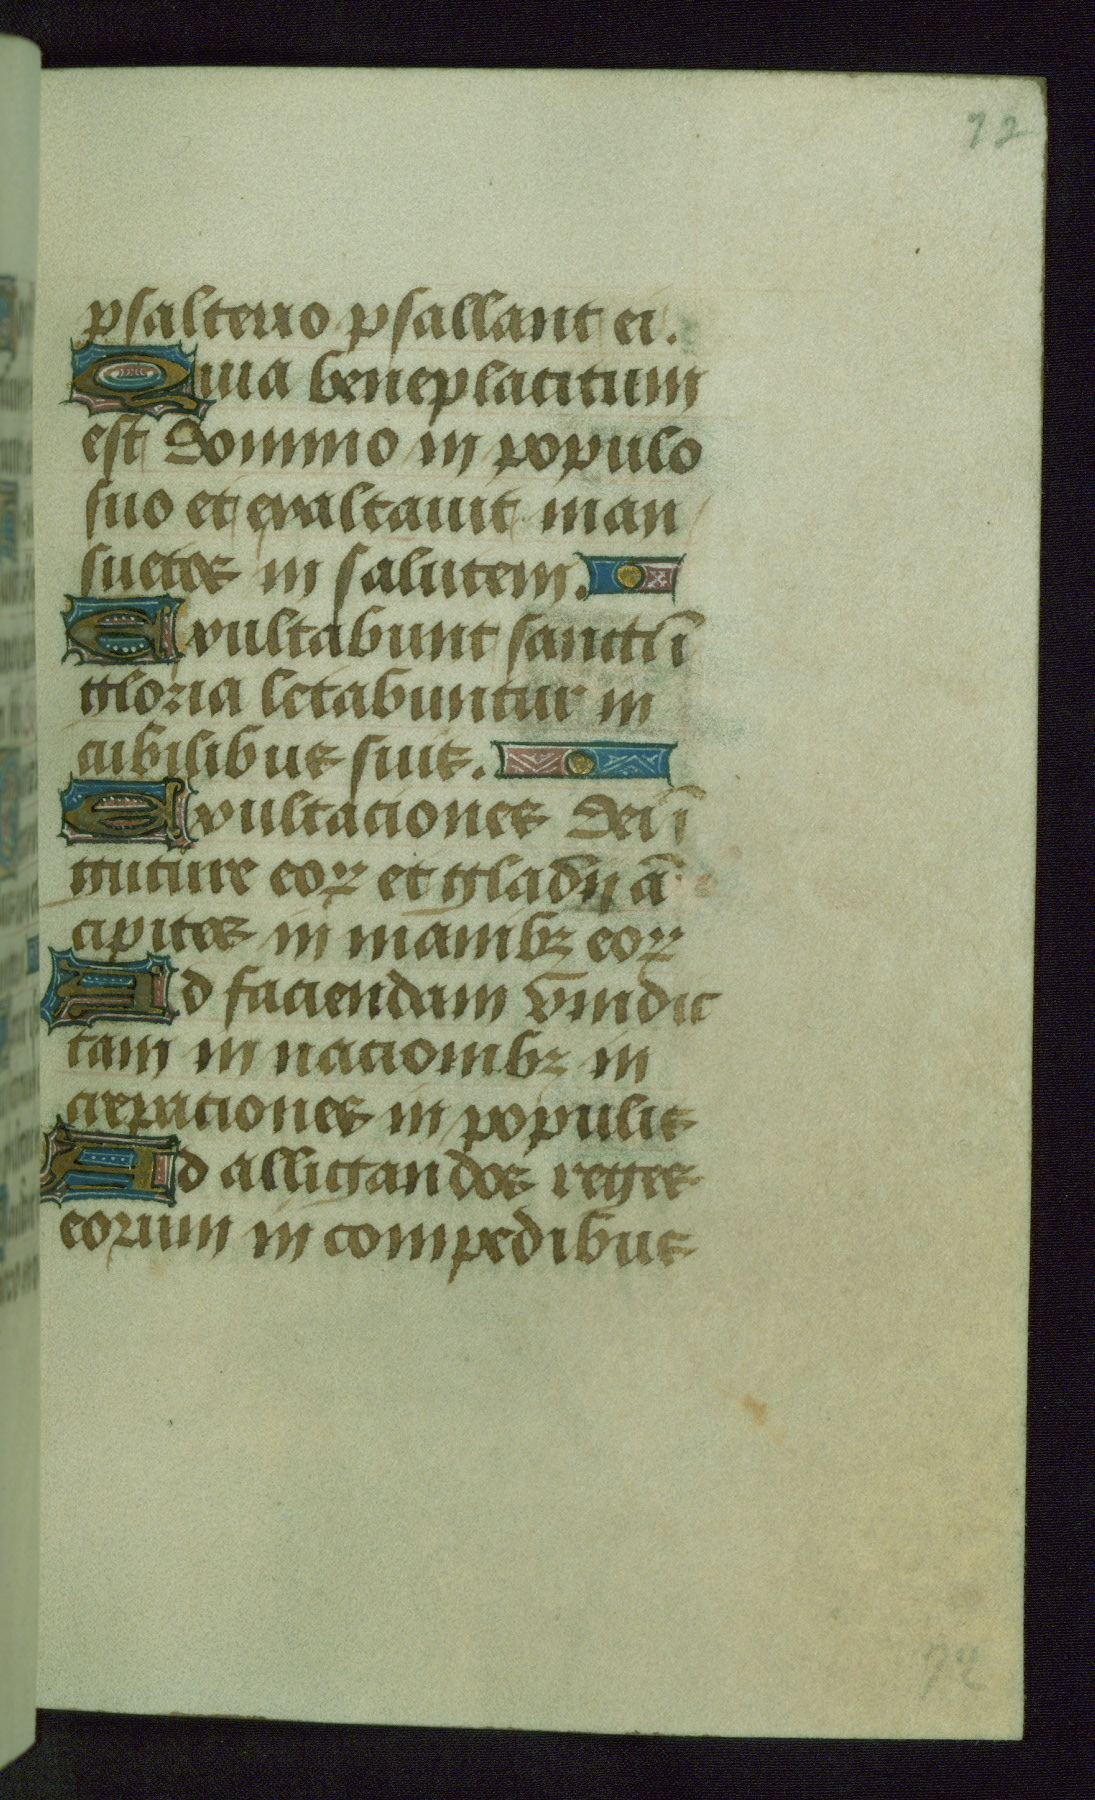 72
psalterio psallant ei.
Quia beneplacitum
est domino in populo
suo et exaltavit man
suetos in salutem.
Exultabunt sancti ī
gloria letabuntur in
cubilibus suis.
Exultaciones dei ī
gutture eoꝝ et gladii ā
cipites in manibꝫ eoꝝ
Ad faciendam vīndic
tam in nacionibꝫ in
crepaciones in populis
Ad alligandos reges
eorum in compedibus
72